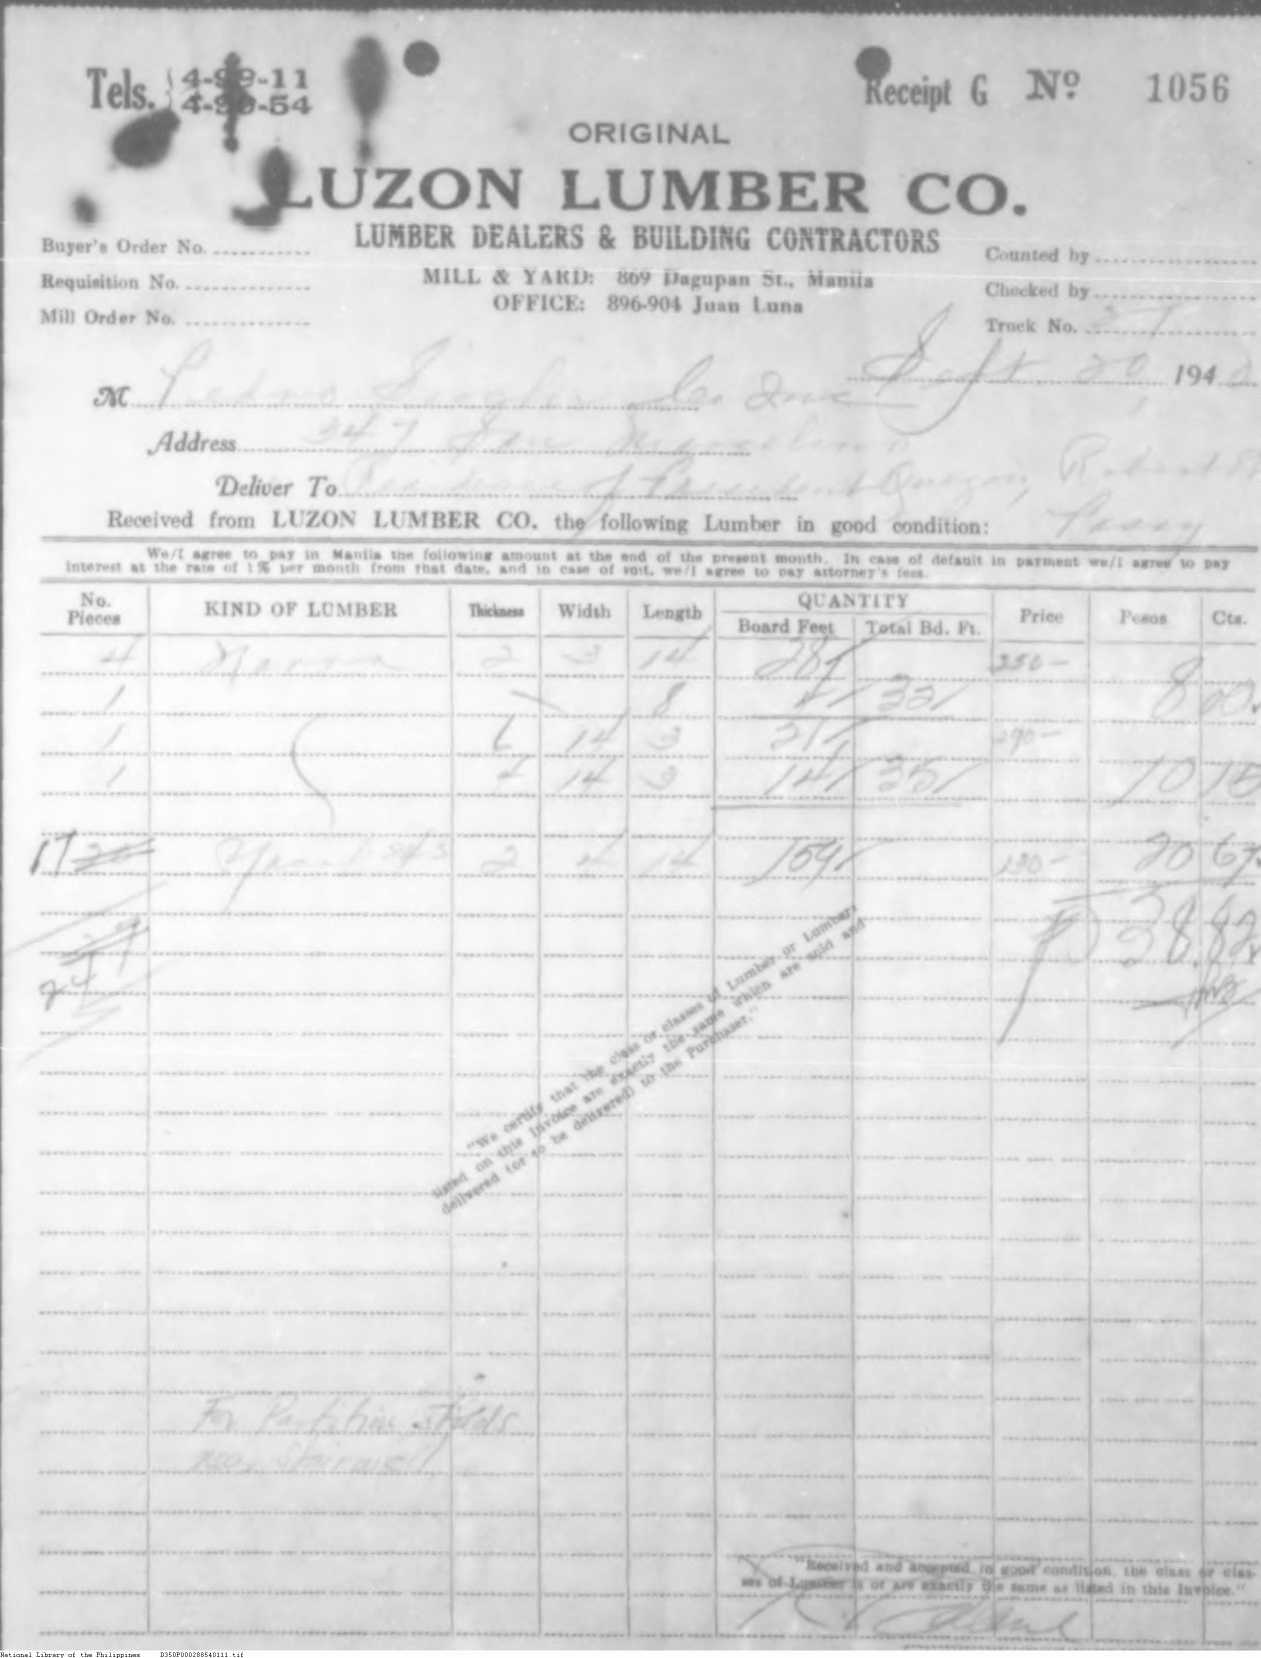 Tels. 4-99-11
4-90-54
Receipt G Nº 1056
ORIGINAL
LUZON LUMBER CO.
LUMBER DEALERS & BUILDING CONTRACTORS
MILL & YARD: 869 Dagupan St., Manila
OFFICE: 896-904 Juan Luna
Buyer's Order No.
Requisition No.
Mill Order No.
Counted by
Checked by
Truck No.
Sept 20, 1940
M Pedro Co Inc
Address 347 San Marcelino
Deliver To Residence of President Quezon, Robert St
Received from LUZON LUMBER CO. the following Lumber in good condition: Pasay
We/I agree to pay in Manila the following amount at the end of the present month. In case of default in payment we/I agree to pay
interest at the rate of 1% per month from that date, and in case of suit, we/I agree to pay attorney's fees.
No. Pieces KIND OF LUMBER Thickness Width Length QUANTITY Board Feet Total Bd. Ft. Price Pesos Cts.
4 Narra 2 3 14 28 250-
1 8 4 32 8 00
1 6 14 3 21 290-
1 4 14 3 14 35 10 15
17 2 4 14 159 130- 20 67
P 38.82
"We certify that the class or classes of Lumber or Lumbers
listed on this Invoice are exactly the same which are sold and
delivered (or to be delivered) to the Purchaser."
For Partition studs
near Stairwell
"Received and accepted in good condition, the class or clas-
ses of Lumber is or are exactly the same as listed in this Invoice."
National Library of the Philippines D350P000288540111.tif